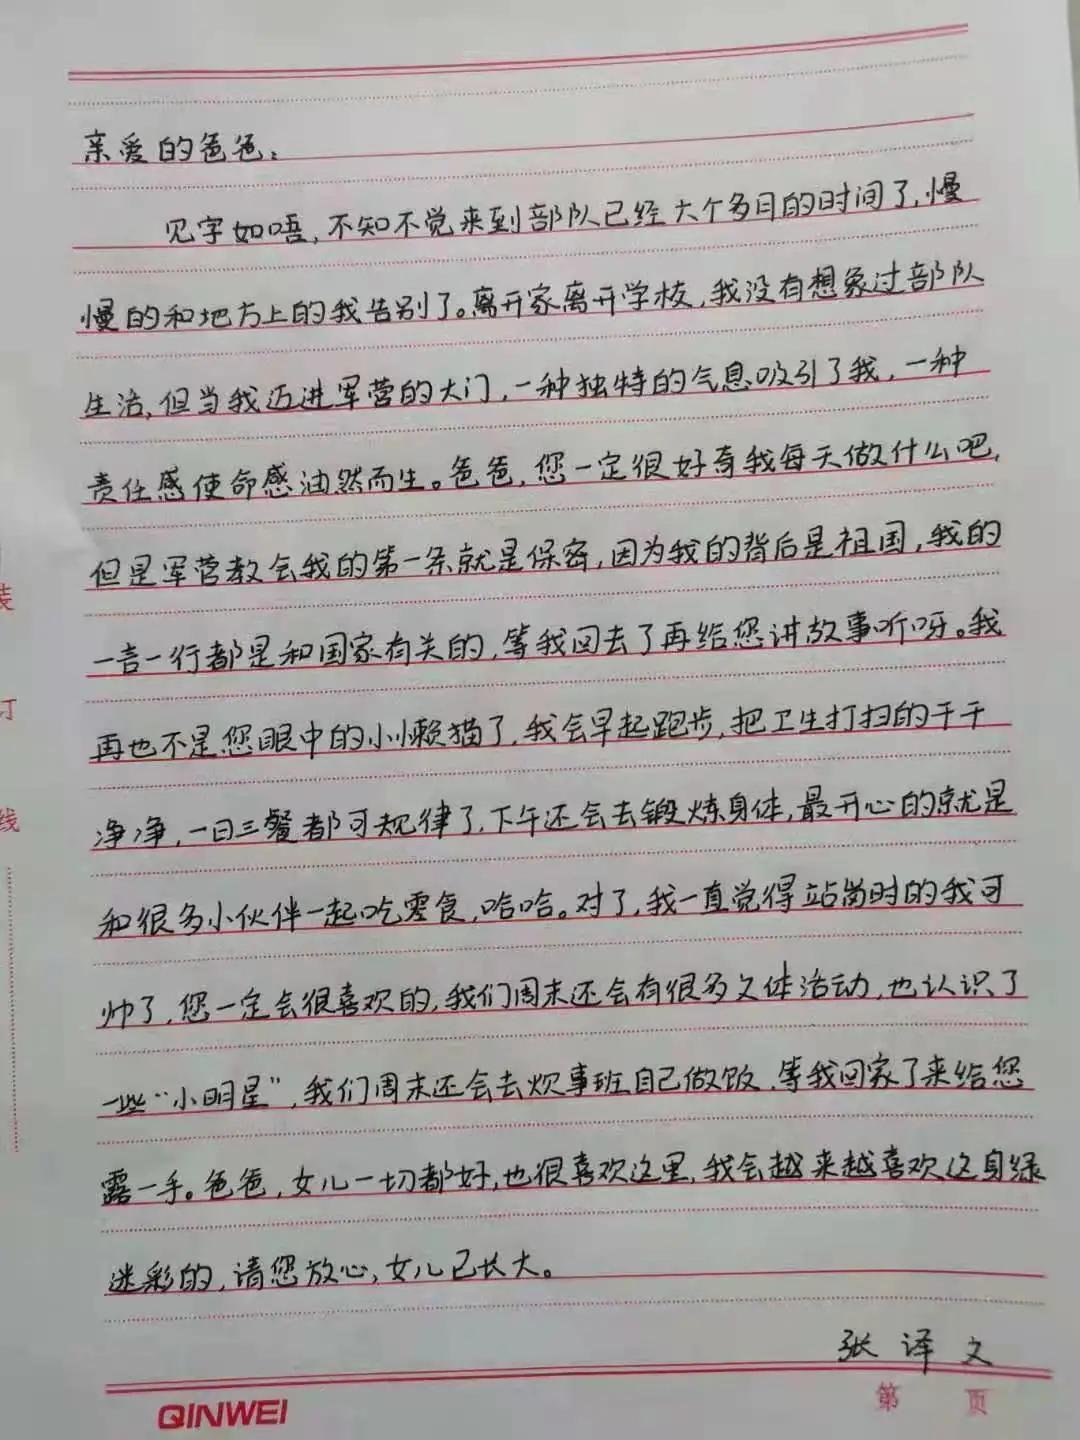 亲爱的爸爸：
见字如唔，不知不觉来到部队已经六个多月的时间了，慢
慢的和地方上的我告别了。离开家离开学校，我没有想象过部队
生活，但当我迈进军营的大门，一种独特的气息吸引了我，一种
责任感使命感油然而生。爸爸，您一定很好奇我每天做什么吧，
但是军营教会我的第一条就是保密，因为我的背后是祖国，我的
一言一行都是和国家有关的，等我回去了再给您讲故事听呀。我
再也不是您眼中的小懒猫了，我会早起跑步，把卫生打扫的干干
净净，一日三餐都可规律了，下午还会去锻炼身体，最开心的就是
和很多小伙伴一起吃零食，哈哈。对了，我一直觉得站岗时的我可
帅了，您一定会很喜欢的，我们周末还会有很多文体活动，也认识了
一些“小明星”，我们周末还会去炊事班自己做饭，等我回家了来给您
露一手。爸爸，女儿一切都好，也很喜欢这里，我会越来越喜欢这身绿
迷彩的，请您放心，女儿已长大。
张译文
第 页
QINWEI
装
订
线